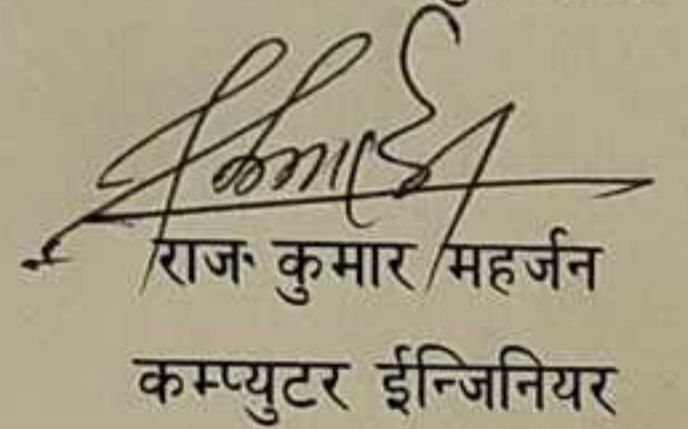 राज कुमार महर्जन
कम्प्युटर ईन्जिनियर